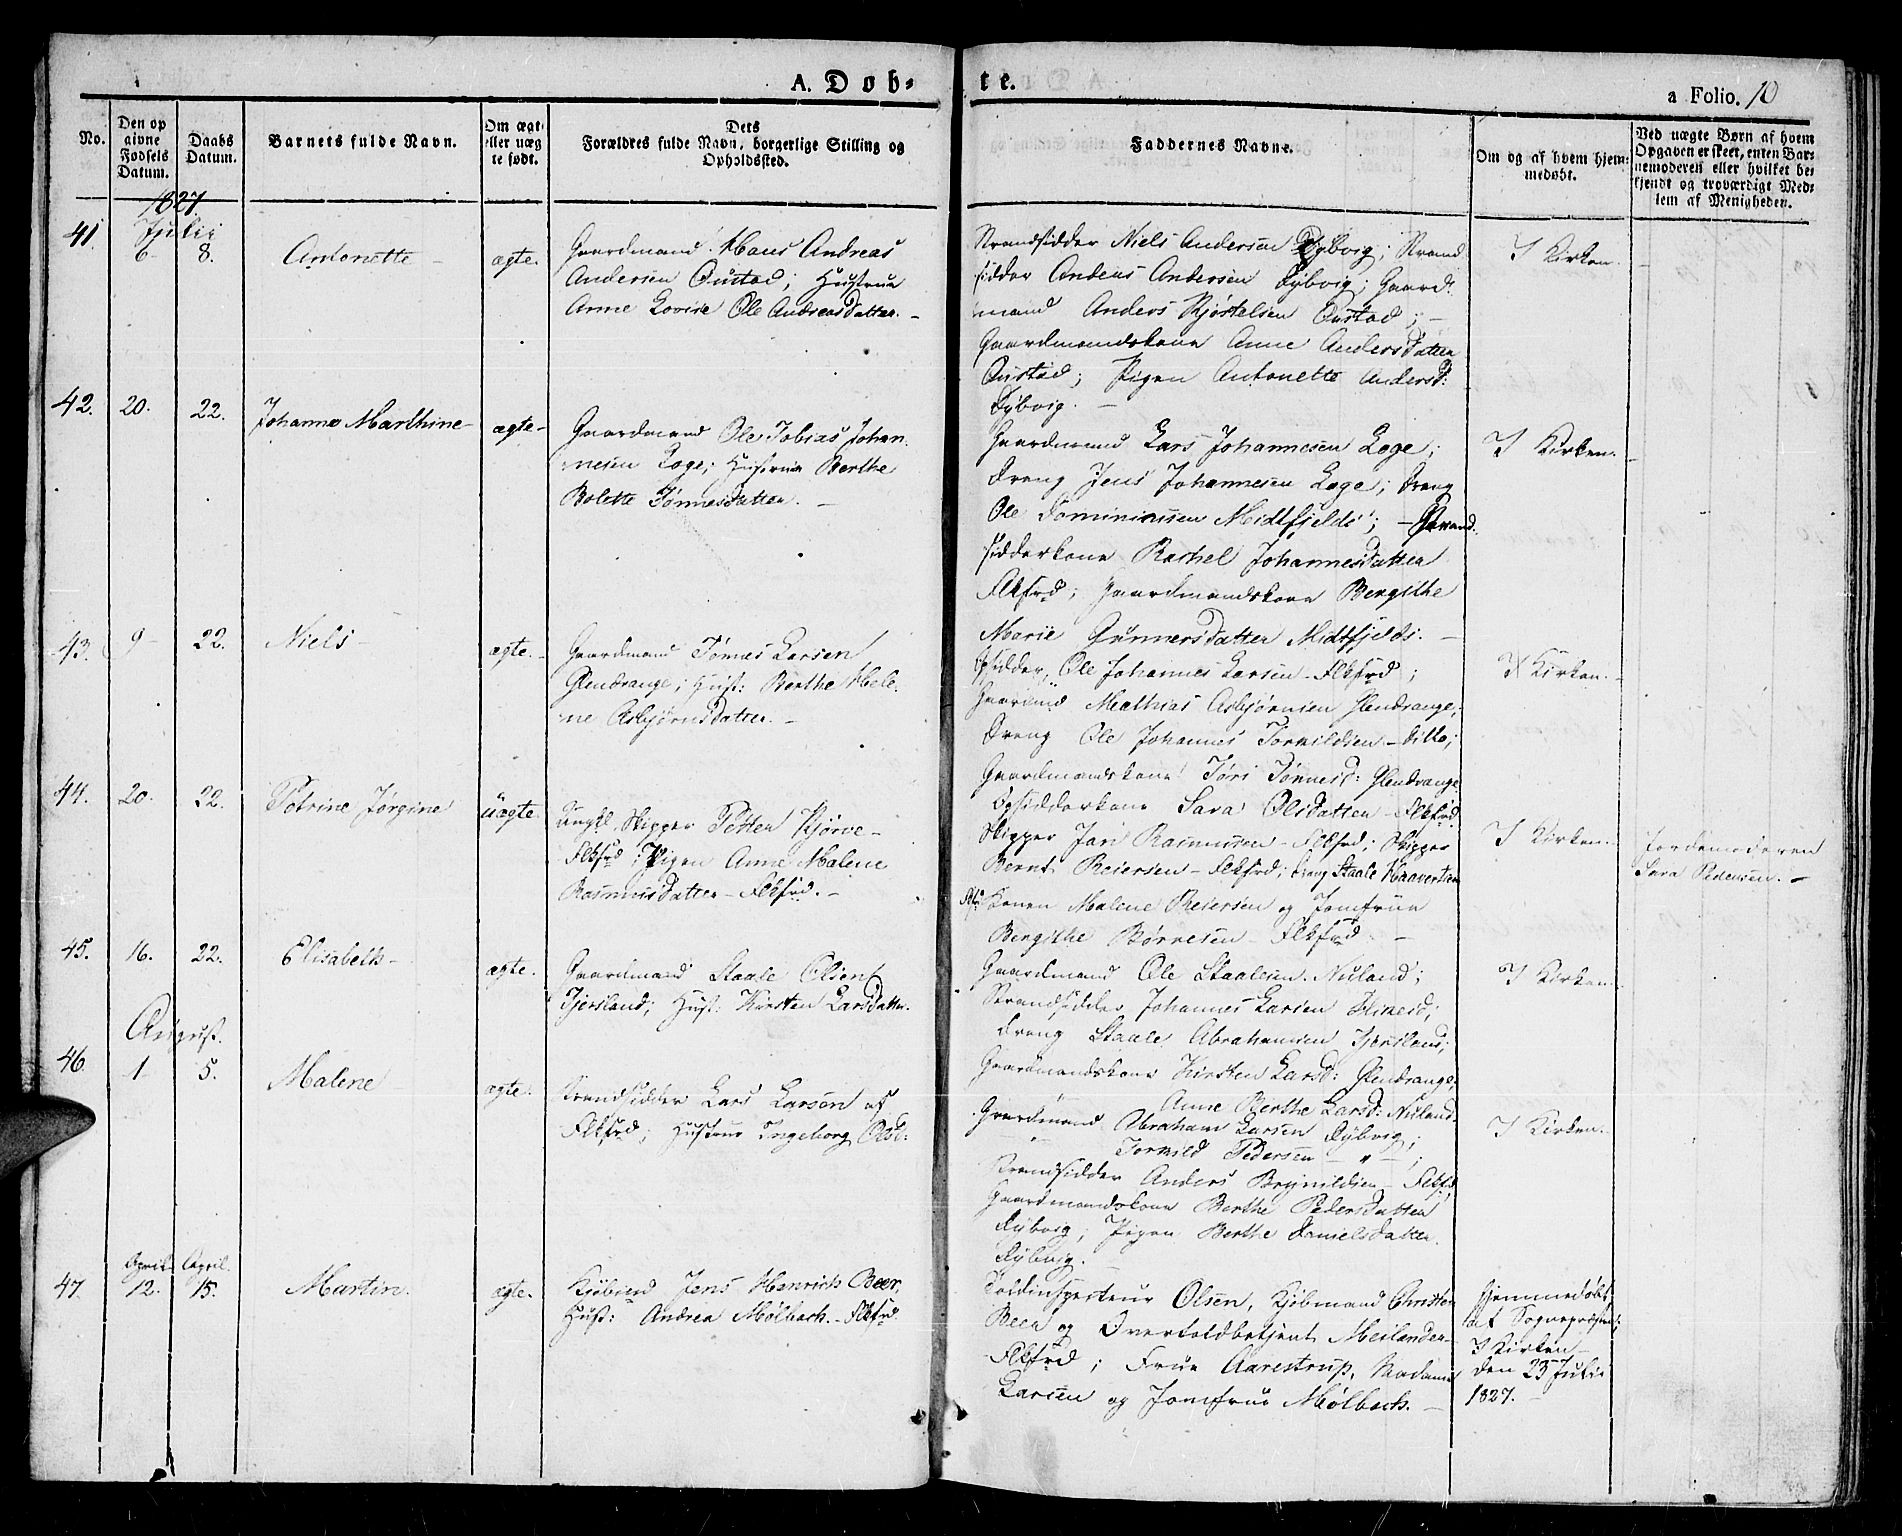 A. Dob-
te.
a Folio. 10
No.
Den op
givne
Fødsels
Datum.
Daabs
Datum.
Barnets fulde Navn.
Om ægte
eller uæg
te født.
Dets
Forældres fulde Navn, borgerlige Stilling og
Opholdssted.
Faddernes Navne.
Om og af hvem hjem-
medøbt.
Ved uægte Børn af hvem
Opgaven er skeet, enten Bar-
nemoderen eller hvilket be-
kjendt og troværdigt Med-
lem af Menigheden.
1827
Julii
41. 6- 8. Antonette - ægte.
Gaardmand Hans Andreas
Andersen Oustad; Hustrue
Anne Lovise Ole Andreasdatter. -
Strandsidder Niels Andersen Rybvig; Strand
sidder Andeas Andersen Rybvig; Gaard-
mand Anders Kjøstelsen Oustad; -
Gaardmandskone Anne Andersdatter
Oustad; Pigen Antonette Andersd:
Rybvig. -
I Kirken. -
42. 20. 22. Johanne Marthine - ægte -
Gaardmand Ole Tobias Johan
nesen Loge; Hustrue Berthe
Bolette Tønnesdatter. -
Gaardmand Lars Johannesen Loge;
Dreng Jens Johannesen Loge; Dreng
Ole Dominicussen Midtfjelds; - Strand
sidderkone Rachel Johannesdatter
Flkfrd; Gaardmandskone Bergithe
Marie Gunnersdatter Midtfjelds. -
I Kirken. -
43. 9- 22. Niels - ægte. -
Gaardmand Tønnes Larsen
Glendrange; Hust: Berthe Hele
ne Asbjørnsdatter. -
Opsidder, Ole Johannes Larsen - Flkfrd;
Gaardmd Mathias Asbjørnsen Glendrange;
Dreng Ole Johannes Torkildsen - ditto;
Gaardmandskone Tøri Tønnesd: Glendrange
Opsidderkone Sara Olsdatter - Flkfrd.
I Kirken. -
44. 20. 22. Petrine Jørgine uægte.
Ungkl. Skipper Petter Bjørve -
Flkfrd; Pigen Anne Malene
Rasmusdatter - Flkfrd. -
Skipper Jan Rasmussen - Flkfrd; Skipper
Bernt Reiersen - Flkfrd; Dreng Staale Haavorsen
Konen Malene Reiersen og Jomfrue
Bergithe Børvesen - Flkfrd. -
I Kirken. -
Jordemoderen
Sara Pedersen. -
45. 16. 22. Elisabeth - ægte.
Gaardmand Staale Olsen
Tjersland; Hust: Kirsten Larsdatter.
Gaardmand Ole Staalesen Nuland;
Strandsidder Johannes Larsen
Dreng Staale Abrahamsen Tjersland;
Gaardmandskone Kirsten Larsd: Glendrange;
Anne Berthe Larsd: Nuland.
I Kirken.
August.
46. 1 5. Malene ægte.
Strandsidder Lars Larsen af
Flkfrd; Hustrue Ingeborg Olsd:
Gaardmand Abraham Larsen Rybvig;
Torkild Pedersen - " - ;
Strandsidder Anders Brynildsen - Flkfrd;
Gaardmandskone Berthe Pedersdatter
Rybvig; Pigen Berthe Danielsdatter
Rybvig. -
I Kirken. -
April April.
47. 12. 15. Martin. ægte.
Kjøbmd Jens Henrich Beer,
Hust: Andrea Mølbach. - Flkfrd.
Toldinspecteur Olsen, Kjøbmand Christen
Beer og Overtoldbetjent Meilænder -
Flkfrd; Frue Aarestrup, Madame
Larsen og Jomfrue Mølbach. -
Hjemmedøbt
af Sognepræsten;
I Kirken -
den 23 Julii
1827. -